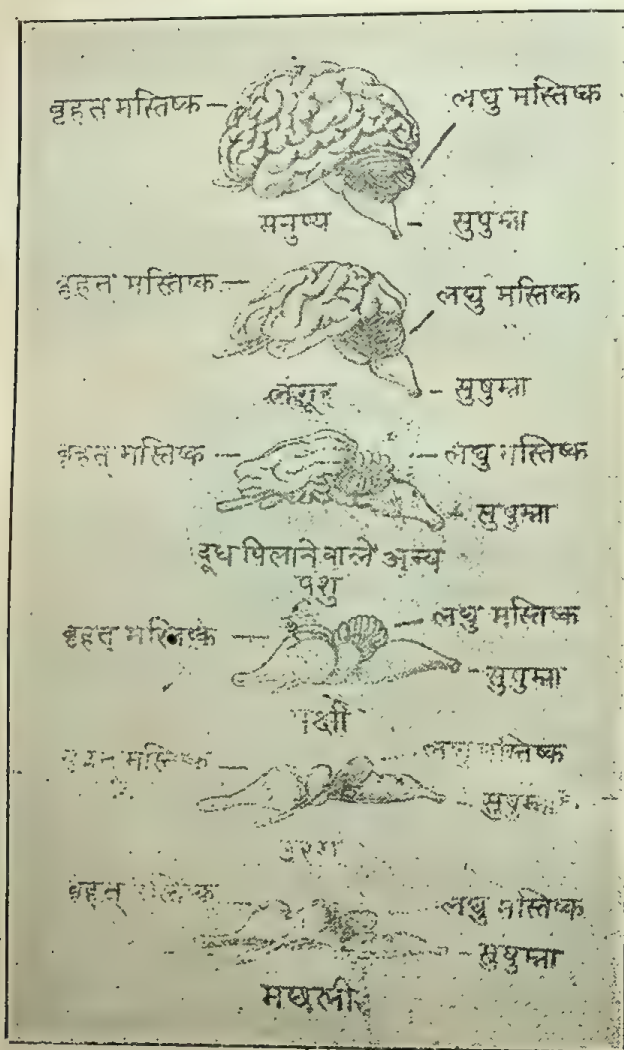 बृहत मस्तिष्क
लघु मस्तिष्क
सुषुम्ना
मनुष्य
बृहत मस्तिष्क
लघु मस्तिष्क
सुषुम्ना
लंगूर
बृहत् मस्तिष्क
लघु मस्तिष्क
सुषुम्ना
दूध पिलाने वाले अन्य
पशु
बृहत् मस्तिष्क
लघु मस्तिष्क
सुषुम्ना
पक्षी
बृहत् मस्तिष्क
लघु मस्तिष्क
सुषुम्ना
उरग
बृहत् मस्तिष्क
लघु मस्तिष्क
सुषुम्ना
मछली